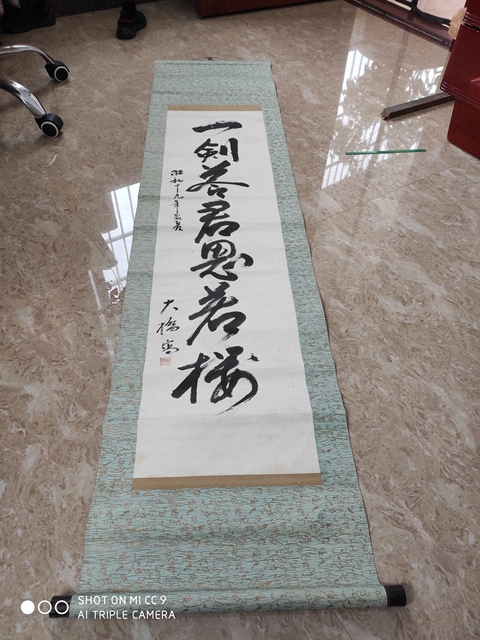 一剣答君恩若桜
昭和十九年
大橋
SHOT ON MI CC 9
AI TRIPLE CAMERA